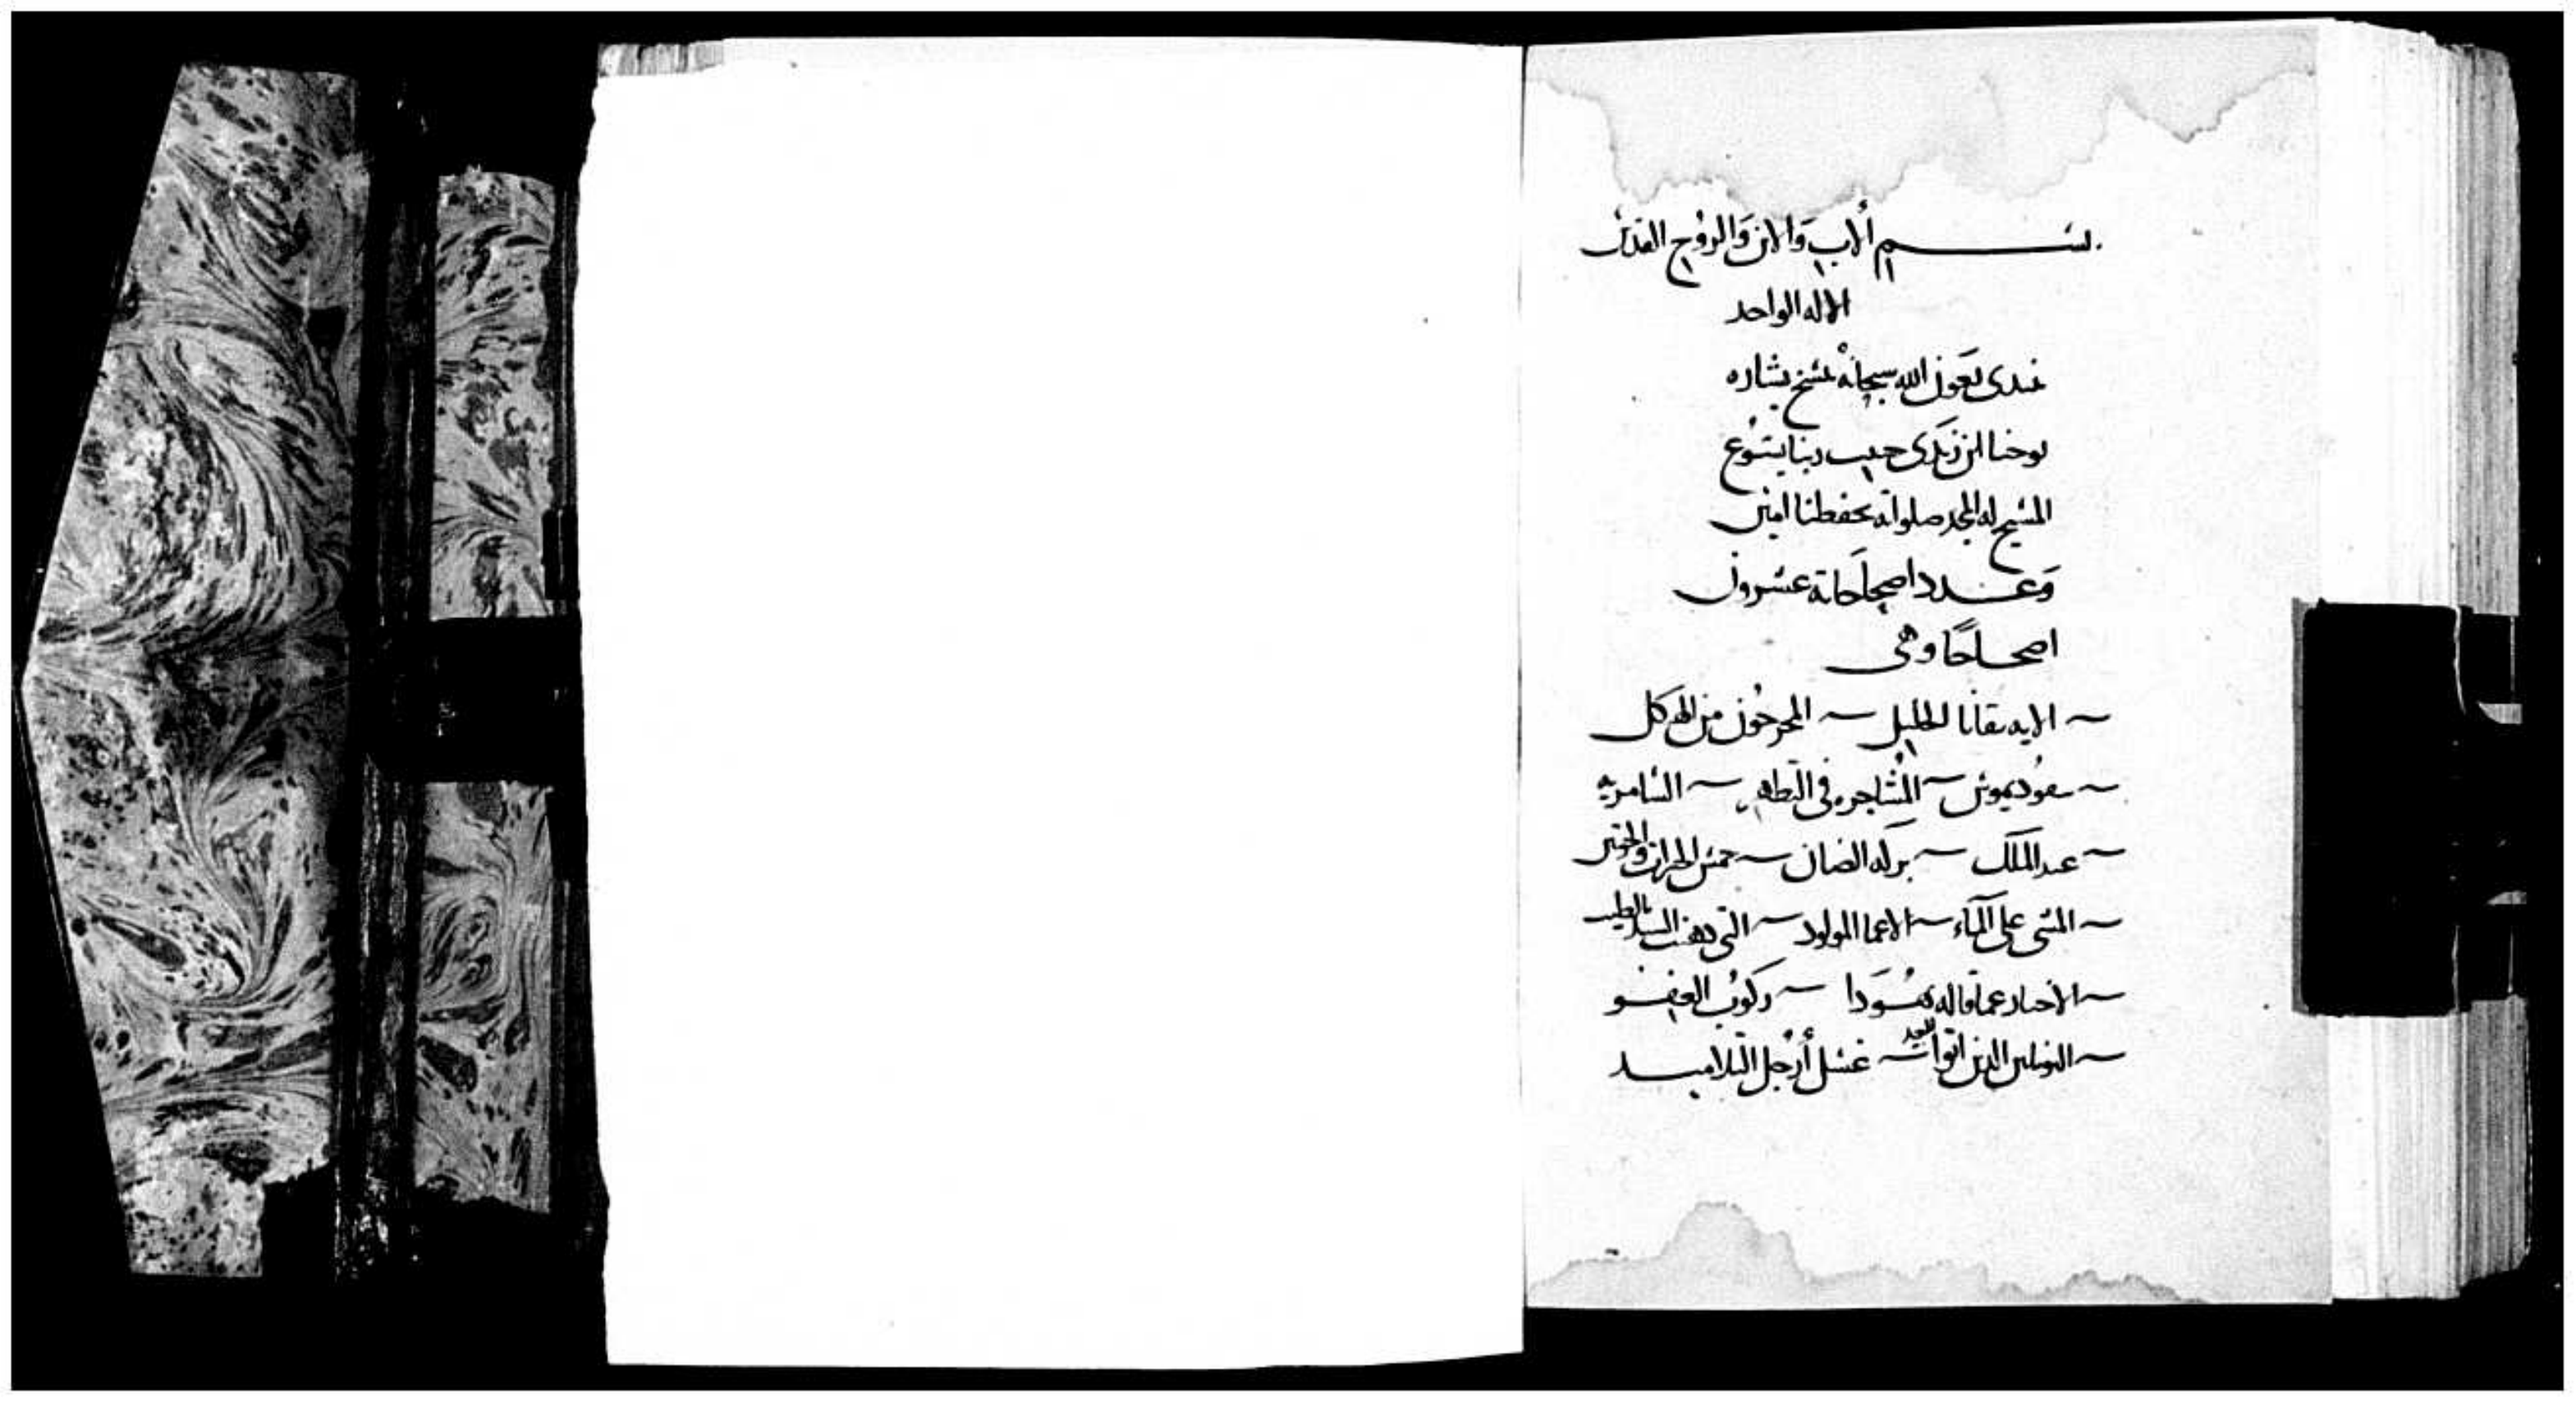 بسم الاب والابن والروح القدس
الاله الواحد
نبتدى بعون الله سبحانه بنسخ بشاره
يوحنا ابن زبدى حبيب ربنا يسوع
المسيح له المجد صلواته تحفظنا امين
وعدد اصحاحاته عشرون
اصحاحًا وهى
الايه بقانا الجليل المخرجون من الهيكل
نيقوديموس المشاجره فى التطهير السامريه
عبد الملك بركه الضان خمس الخبزات والحوتين
المشى على المآء الاعما المولود التى دهنت السيد بالطيب
الاخبار عما قاله يهودا ركوب العفو
اليونانيين الذين اتوا للعيد غسل أرجل التلاميد